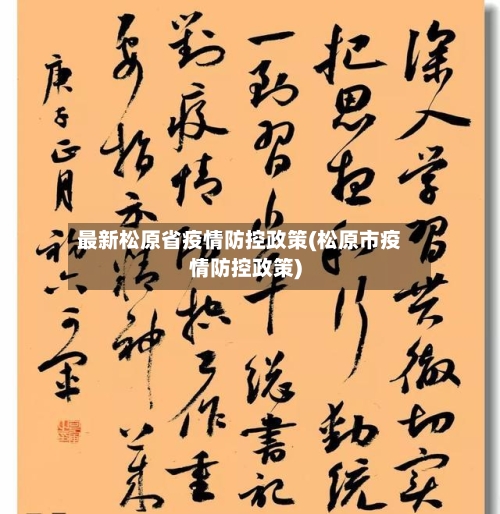 最新松原省疫情防控政策(松原市疫
情防控政策)
深入学習贯徹切实
把思想和行動統
一到習近平総書记
對疫情防控工作重
要指示精神上来
庚子正月初六